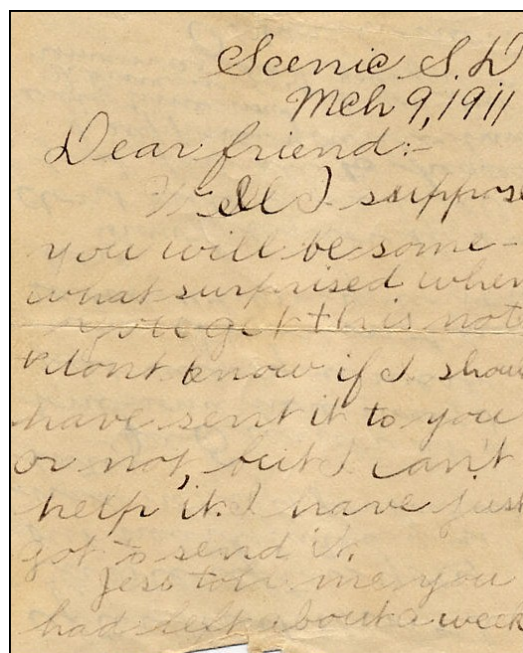 Scenic S.D
Mch 9, 1911
Dear friend:-
Well I suppose
you will be some-
what surprised when
you get this not
I dont know if I shou
have sent it to you
or not, but I can't
help it. I have just
got to send it.
Jess told me you
had left about a week